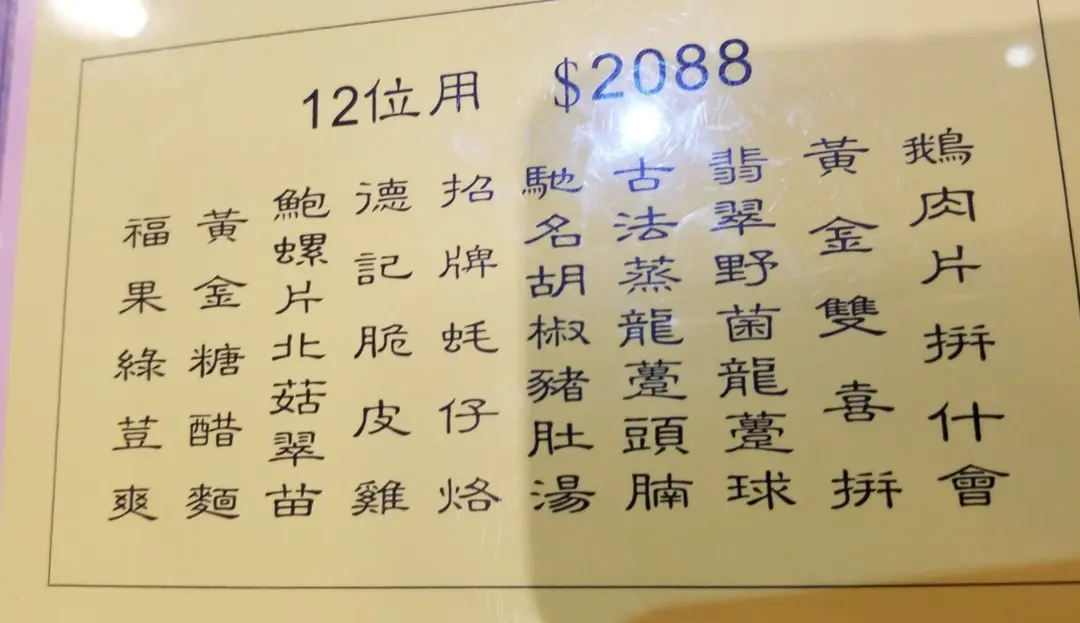 12位用 $2088
鵝肉片拼什會
黃金雙喜拼
翡翠野菌龍躉球
古法蒸龍躉頭腩
馳名胡椒豬肚湯
招牌蚝仔烙
德記脆皮雞
鮑螺片北菇翠苗
黃金糖醋麵
福果綠荳爽